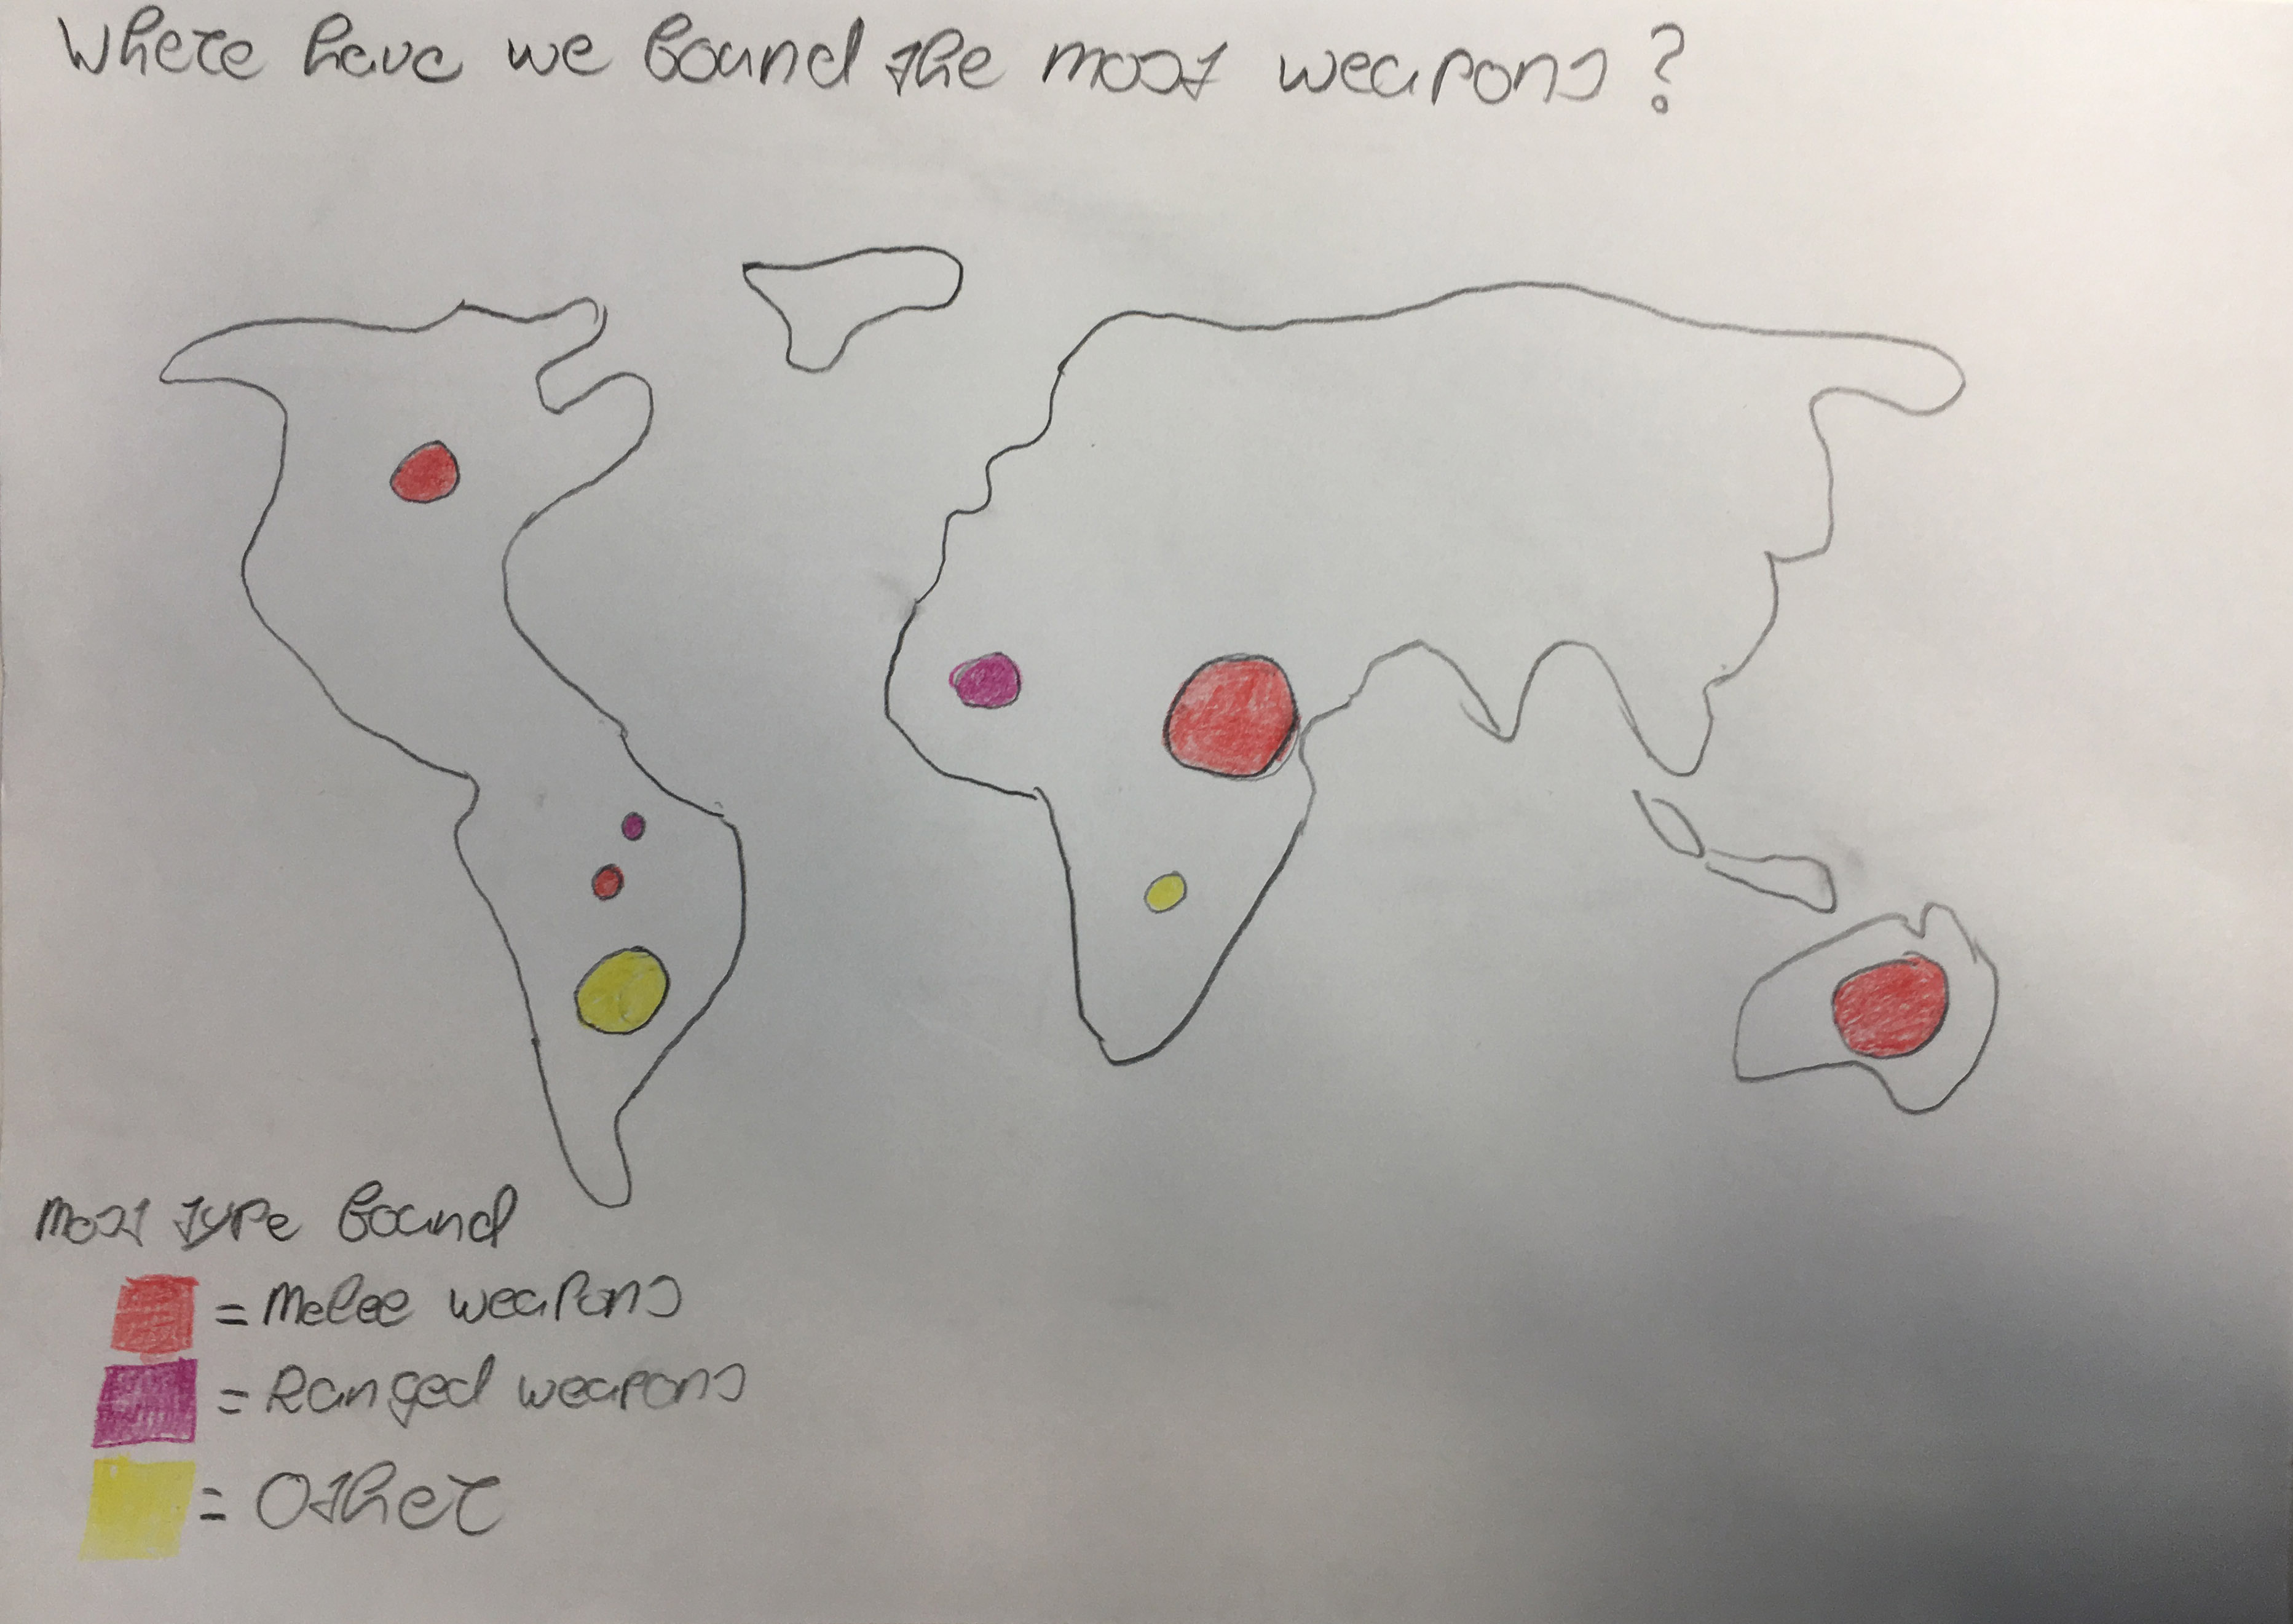 Where have we found the most weapons?
Most type found
= Melee weapons
= Ranged weapons
= Other